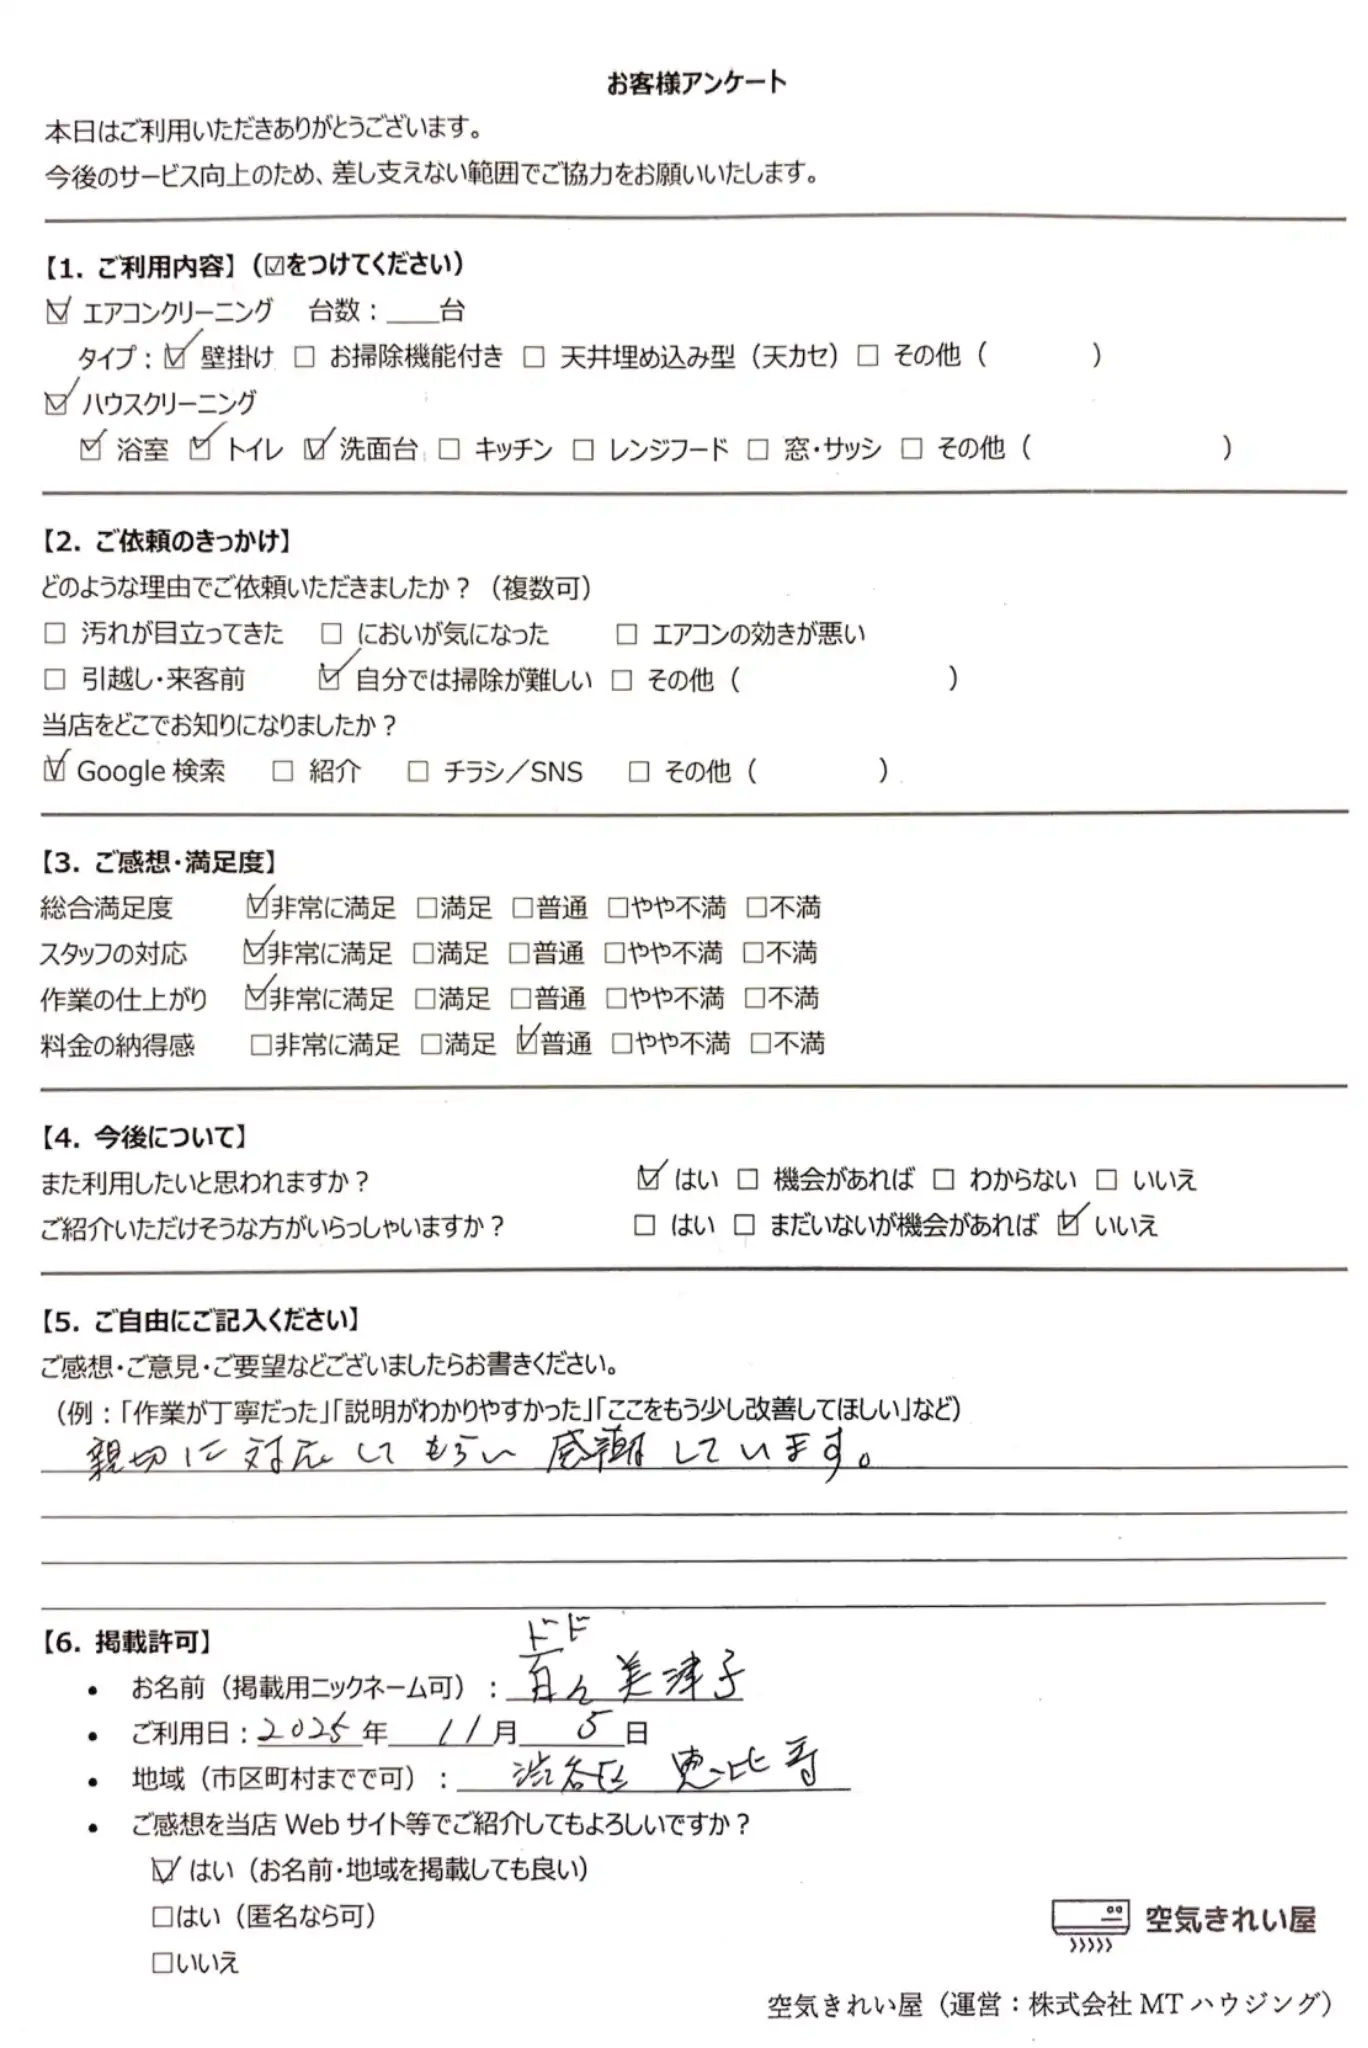 お客様アンケート
本日はご利用いただきありがとうございます。
今後のサービス向上のため、差し支えない範囲でご協力をお願いいたします。
【1. ご利用内容】（☑をつけてください）
☑ エアコンクリーニング 台数：___台
タイプ：☑ 壁掛け □ お掃除機能付き □ 天井埋め込み型（天カセ）□ その他（ ）
☑ ハウスクリーニング
☑ 浴室 ☑ トイレ ☑ 洗面台 □ キッチン □ レンジフード □ 窓・サッシ □ その他（ ）
【2. ご依頼のきっかけ】
どのような理由でご依頼いただきましたか？（複数可）
□ 汚れが目立ってきた □ においが気になった □ エアコンの効きが悪い
□ 引越し・来客前 ☑ 自分では掃除が難しい □ その他（ ）
当店をどこでお知りになりましたか？
☑ Google 検索 □ 紹介 □ チラシ／SNS □ その他（ ）
【3. ご感想・満足度】
総合満足度 ☑非常に満足 □満足 □普通 □やや不満 □不満
スタッフの対応 ☑非常に満足 □満足 □普通 □やや不満 □不満
作業の仕上がり ☑非常に満足 □満足 □普通 □やや不満 □不満
料金の納得感 □非常に満足 □満足 ☑普通 □やや不満 □不満
【4. 今後について】
また利用したいと思われますか？ ☑ はい □ 機会があれば □ わからない □ いいえ
ご紹介いただけそうな方がいらっしゃいますか？ □ はい □ まだいないが機会があれば ☑ いいえ
【5. ご自由にご記入ください】
ご感想・ご意見・ご要望などございましたらお書きください。
（例：「作業が丁寧だった」「説明がわかりやすかった」「ここをもう少し改善してほしい」など）
親切に対応してもらい 感謝しています。
【6. 掲載許可】
ドド
• お名前（掲載用ニックネーム可）：百々 美津子
• ご利用日：2025年 11月 5日
• 地域（市区町村までで可）：渋谷区 恵比寿
• ご感想を当店 Web サイト等でご紹介してもよろしいですか？
☑ はい（お名前・地域を掲載しても良い）
□はい（匿名なら可）
□いいえ
空気きれい屋
空気きれい屋（運営：株式会社 MT ハウジング）